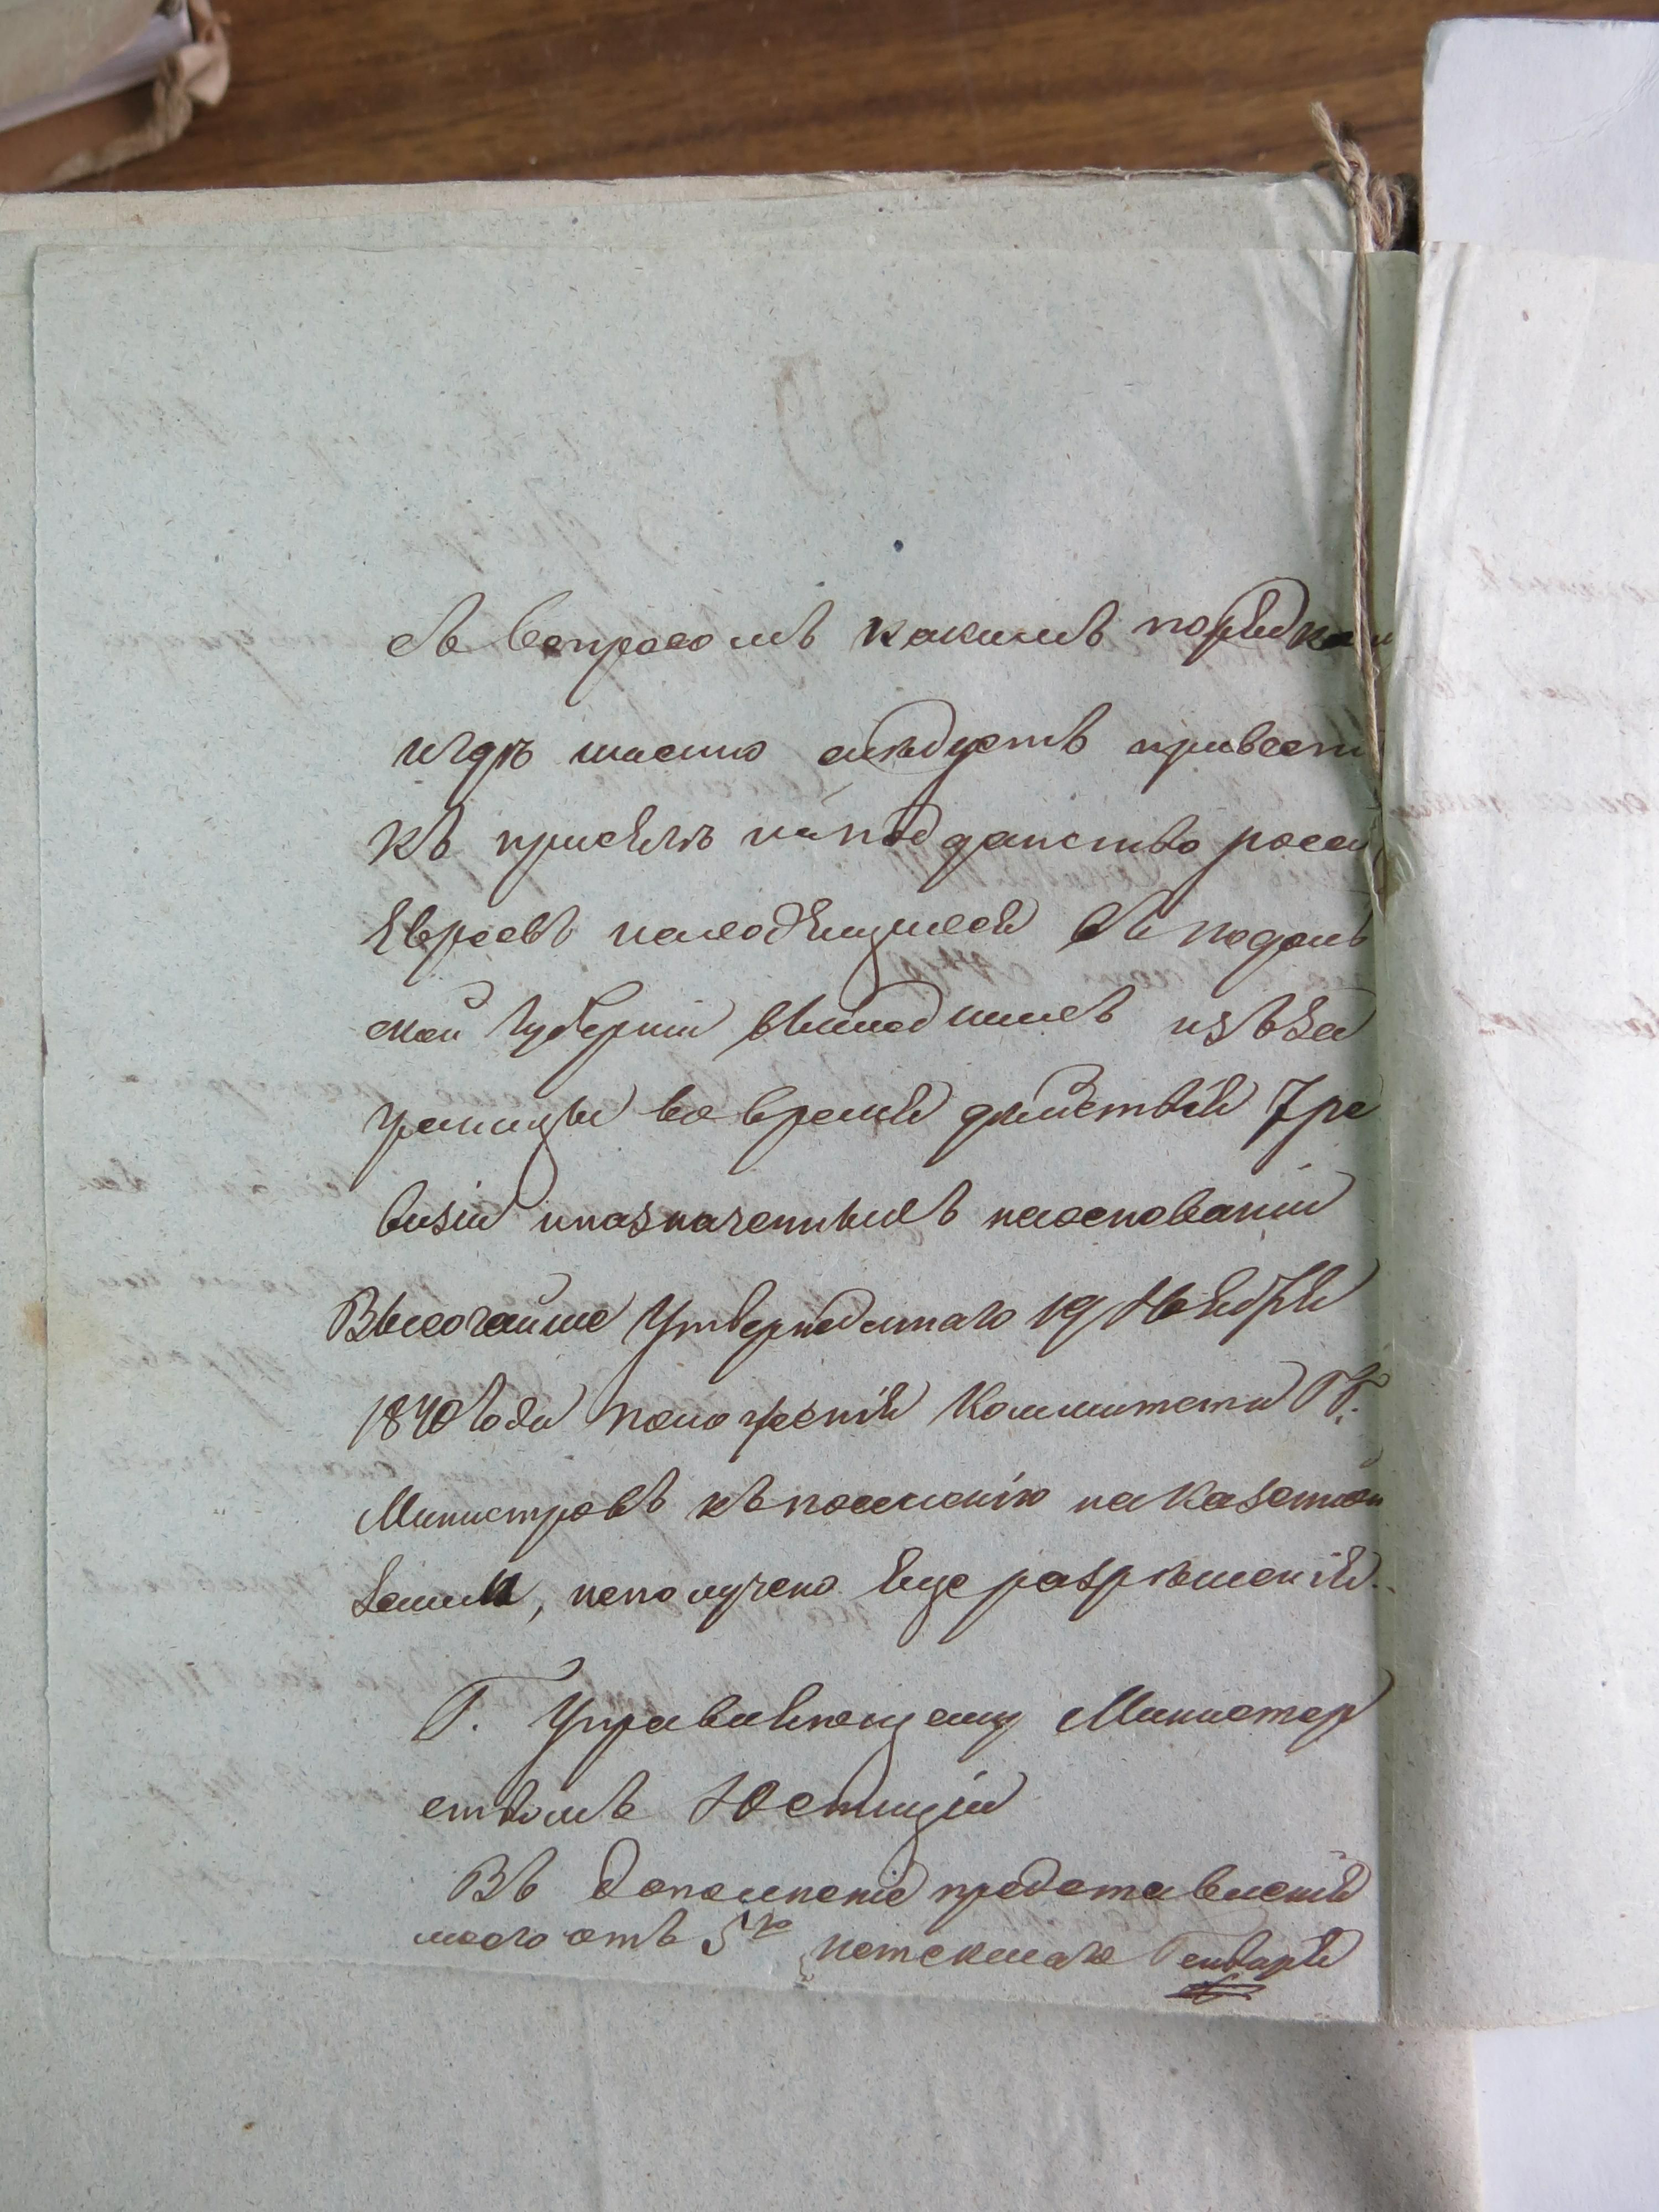 съ вопросомъ какимъ порядком
и гдѣ именно слѣдуетъ привест
къ присягѣ на подданство росси
Евреевъ находящихся въ подоль
ской Губерніи вышедшихъ изъ за
границы во время дѣйствія 7 ре
визіи и назначенныхъ на основаніи
Высочайше Утвержденнаго 19 Ноября
1840 Года положенія Коммитета Г.Г.
Министровъ къ поселенію на казенной
земли, не получено еще разрѣшенія.
Г. Управляющему Министер
ствомъ Юстиціи
Въ дополненіе представленія
моего отъ 5го истекшаго Генваря